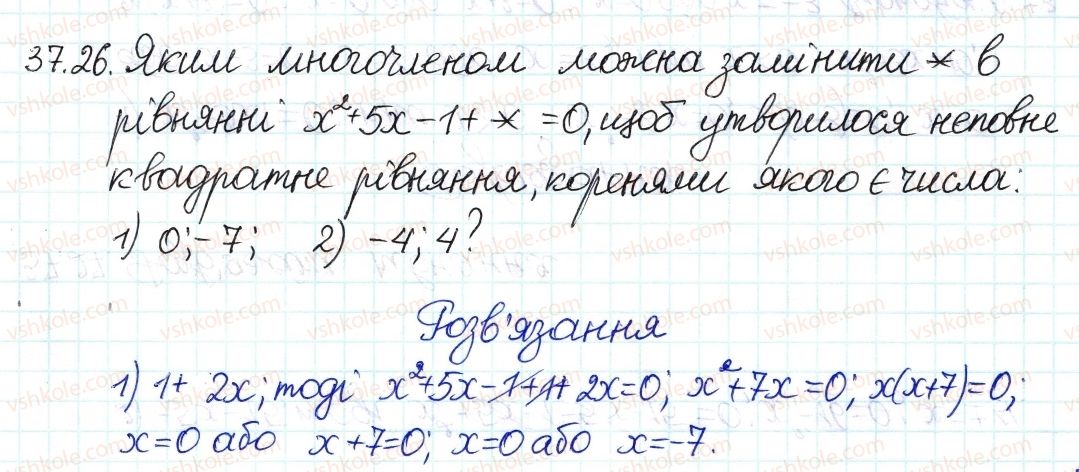 37.26. Яким многочленом можна замінити * в
рівнянні x²+5x-1+ * =0, щоб утворилося неповне
квадратне рівняння, коренями якого є числа:
1) 0; -7; 2) -4; 4?
Розв'язання
1) 1+ 2x; тоді x²+5x-1+1+ 2x=0; x²+7x=0; x(x+7)=0;
x=0 або x+7=0; x=0 або x=-7.